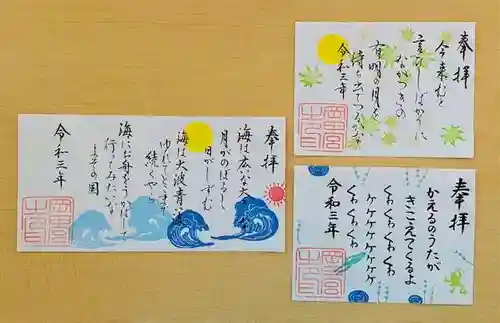 奉拝
海は広いな大きいな
月がのぼるし
日がしずむ
海は大波青い波
ゆれてどこまで
続くやら
海にお舟をうかばして
行ってみたいな
よその国
令和三年
奉拝
今来むと
言ひしばかりに
ながつきの
有明の月を
待ち出でつるかな
令和三年
奉拝
かえるのうたが
きこえてくるよ
くわくわくわくわ
ケケケケケケケケ
くわくわくわ
令和三年